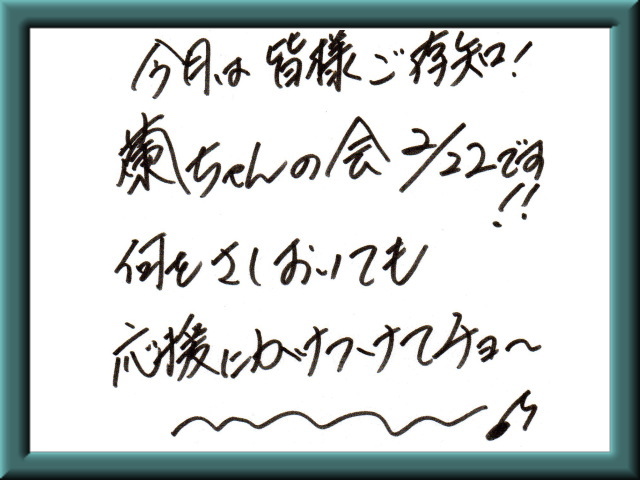 今月は皆様ご存知!
蘭ちゃんの会 2/22です!!
何をさしおいても
応援にかけつけてチョ〜